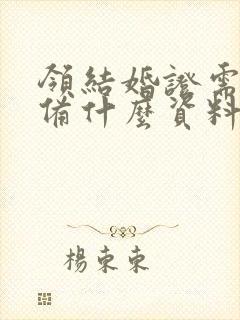 領結婚證需
備什麼資料
楊東東